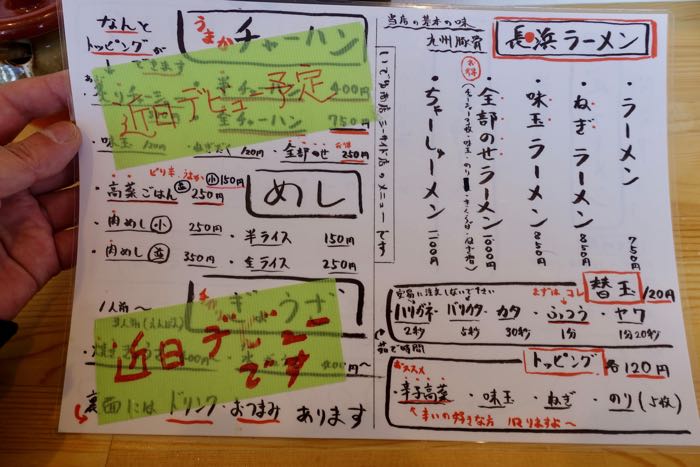 当店の基本の味
九州豚骨
長浜ラーメン
ラーメン 750円
ねぎラーメン 850円
味玉ラーメン 850円
お得
全部のせラーメン 1000円
ちゃーしゅーメン 1100円
替玉
120円
まずはコレ
ハリガネ・バリカタ・カタ・ふつう・ヤワ
2秒 5秒 30秒 1分 1分20秒
茹で時間
トッピング 各120円
おススメ
・辛子高菜・味玉・ねぎ・のり(5枚)
辛いの好きな方 ハマりますよ〜
なんと
トッピングが
できます
うまか チャーハン
半チャーハン 400円
全チャーハン 750円
近日デビュー予定
・味玉 120円 ・ねぎだく 120円 ・全部のせ お得 250円
めし
ピリ辛 うまか 小 150円
・高菜ごはん 並 250円
・肉めし 小 250円 ・半ライス 150円
・肉めし 並 350円 ・全ライス 250円
ぎょうざ
1人前〜
近日デビュー
です
裏面には ドリンク・おつまみ あります